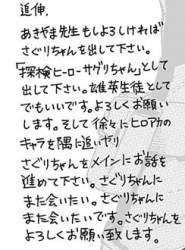 追伸.
あきやま先生もしよろしければ
さぐりちゃんを出して下さい。
「探検ヒーローサグリちゃん」として
出して下さい。雄英生徒とし
てでもいいです。よろしくお願い
します。そして徐々にヒロアカの
キャラを隅に追いやり
さぐりちゃんをメインにお話を
進めて下さい。さぐりちゃんに
また会いたい。さぐりちゃんに
また会いたいです。さぐりちゃんを
よろしくお願い致します。